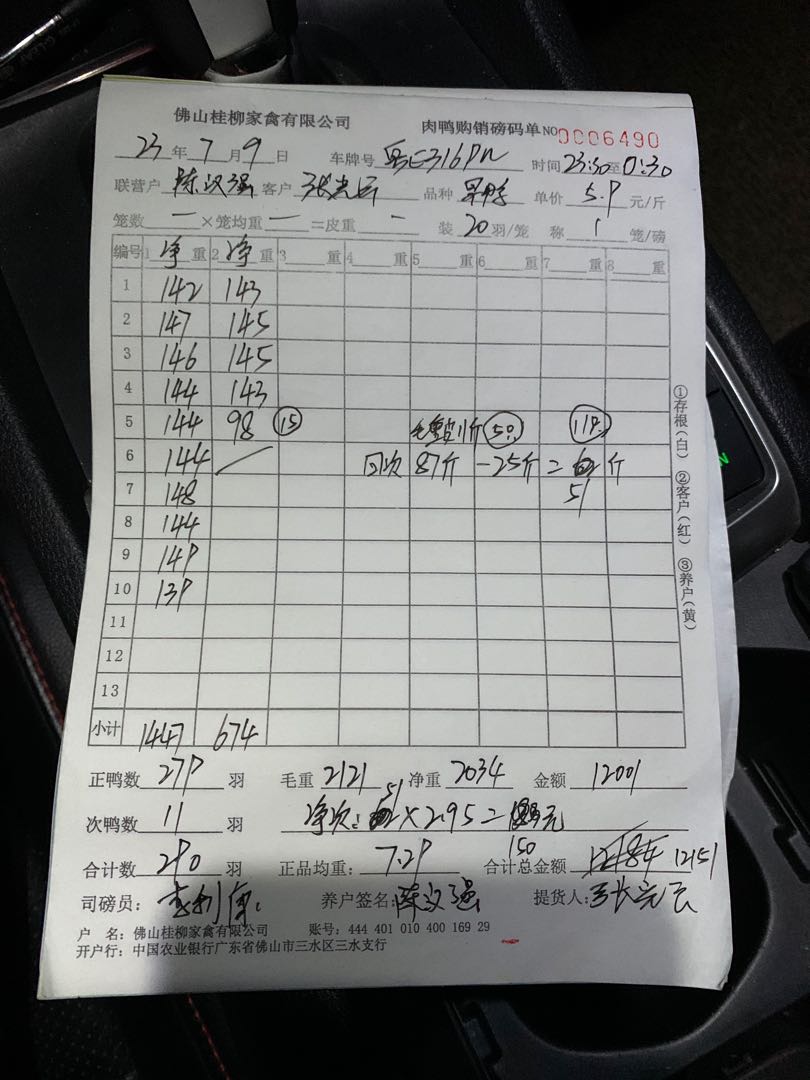 佛山桂柳家禽有限公司 肉鸭购销磅码单 NO 0006490
23 年 7 月 9 日 车牌号 粤E316PN 时间 23:30 至 0:30
联营户 陈汉强 客户 张光云 品种 单价 5.9 元/斤
笼数 一 ×笼均重 一 =皮重 一 装 20 羽/笼 称 1 笼/磅
编号 1 净 重 2 净 重 3 重 4 重 5 重 6 重 7 重 8 重
1 142 143
2 147 145
3 146 145
4 144 143
5 144 98 ⑮
6 144 / 87斤 -25斤 = 斤
7 148 51
8 144
9 149
10 139
11
12
13
小计 1447 674
正鸭数 279 羽 毛重 2121 净重 2034 金额 12001
次鸭数 11 羽 净次: 51 ×2.95= 元
150
合计数 290 羽 正品均重: 7.29 合计总金额 12184 12151
司磅员: 养户签名: 陈汉强 提货人: 张光云
户 名: 佛山桂柳家禽有限公司 账号: 444 401 010 400 169 29
开户行: 中国农业银行广东省佛山市三水区三水支行
①存根(白) ②客户(红) ③养户(黄)